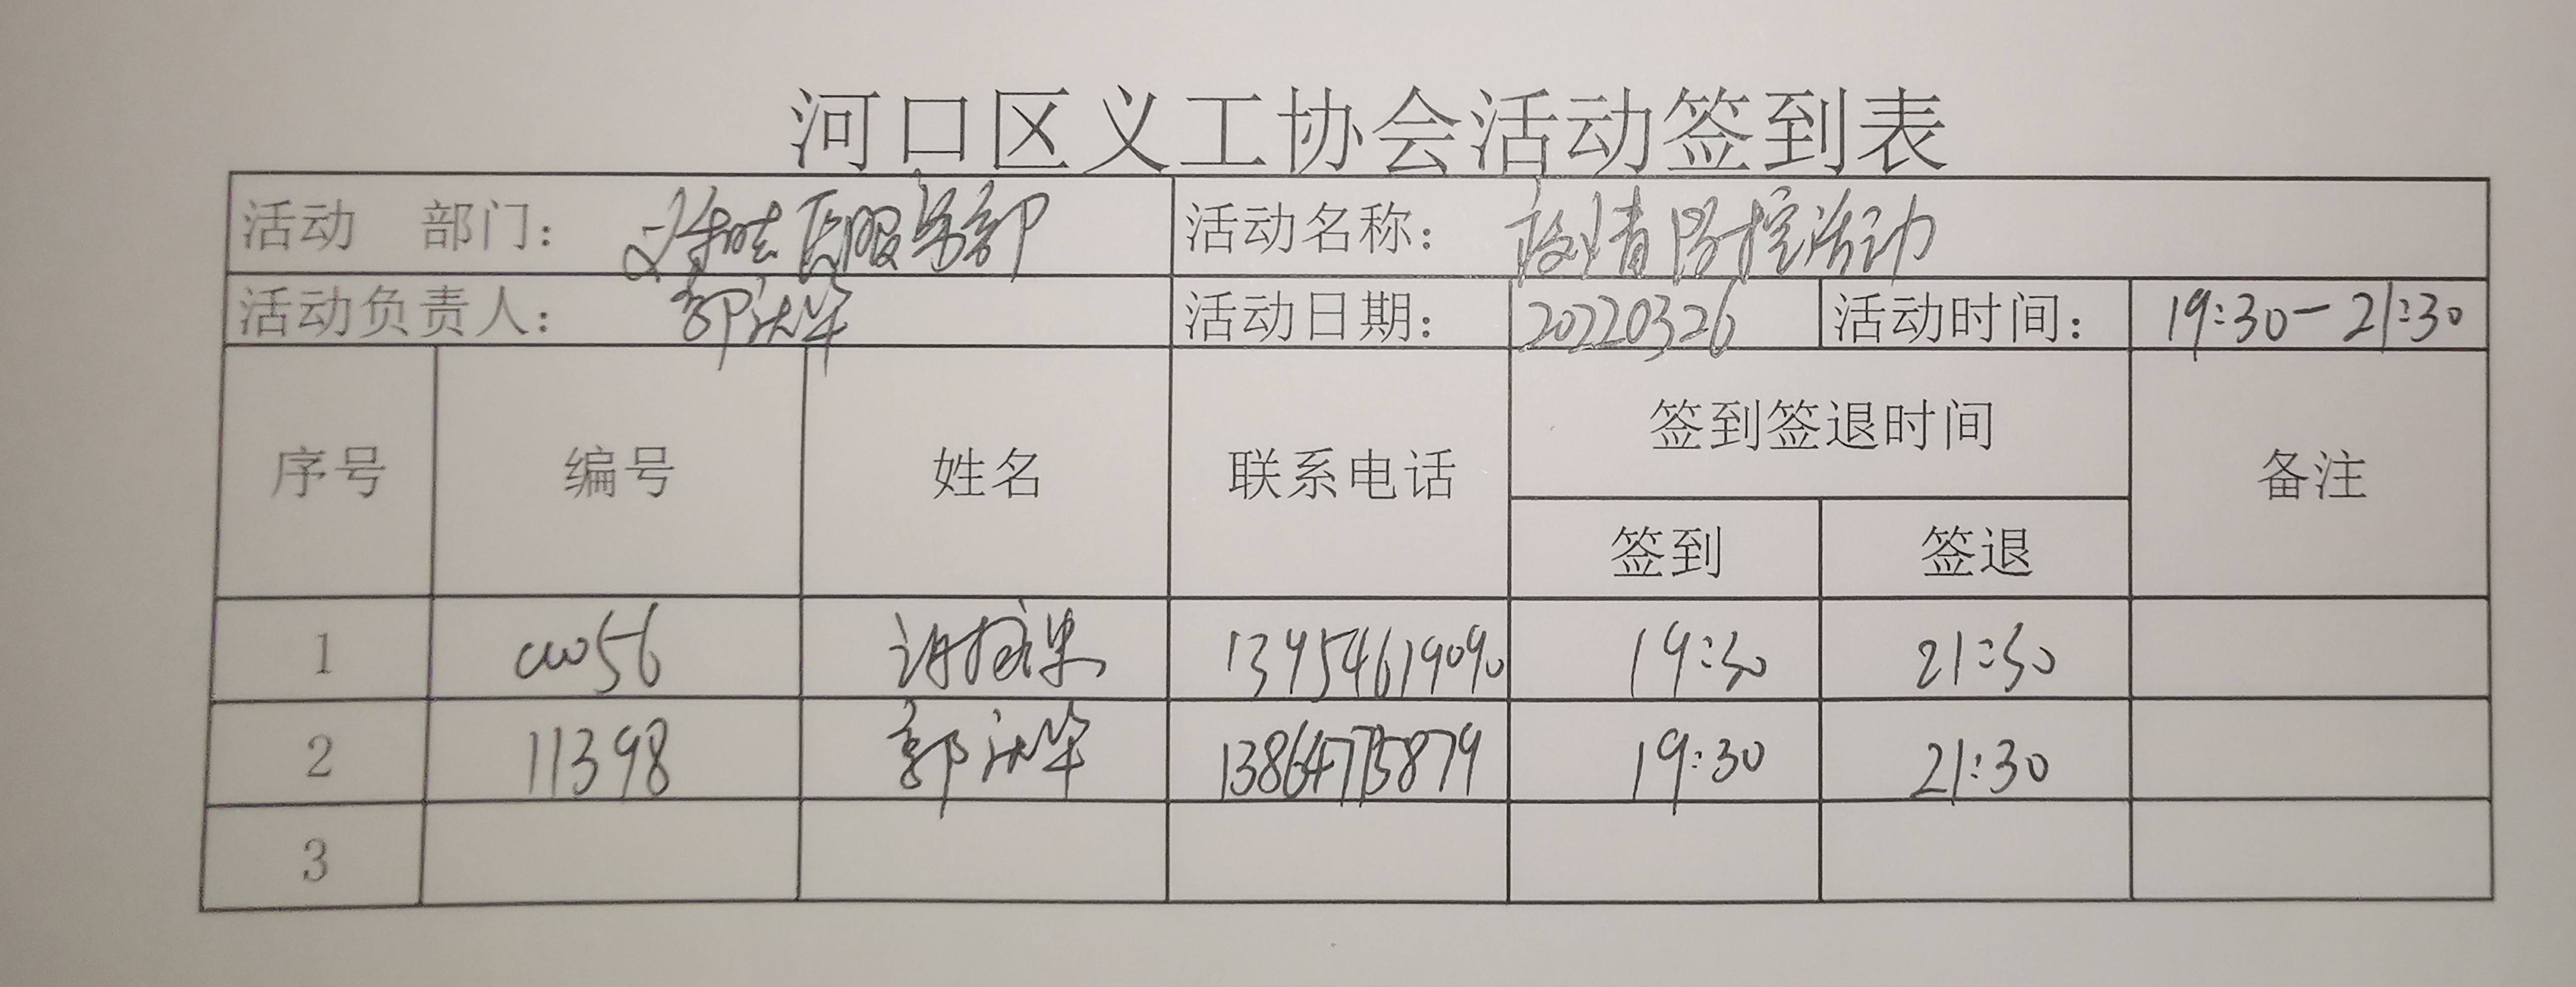 河口区义工协会活动签到表
活动 部门： 服务部 活动名称： 疫情防控活动
活动负责人： 郭 活动日期： 20220326 活动时间： 19:30-21:30
序号 编号 姓名 联系电话 签到签退时间 备注
签到 签退
1 00056 13954619090 19:30 21:30
2 11398 郭 13864735879 19:30 21:30
3